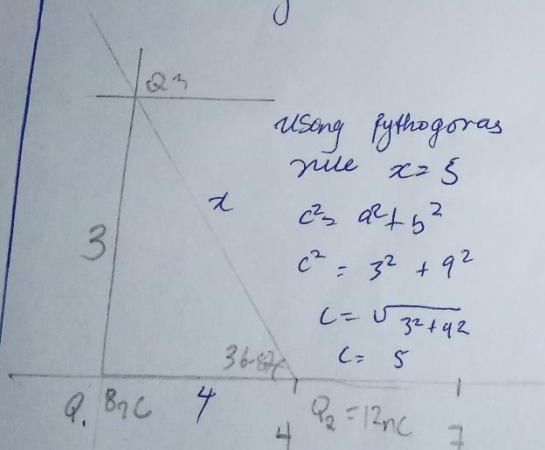 Q3
Using Pythogoras
rule x = 5
x
c² = a² + b²
3
c² = 3² + 4²
c = √3² + 4²
36.87
c = 5
Q1 8nC
4
4
Q2 = 12nC
7